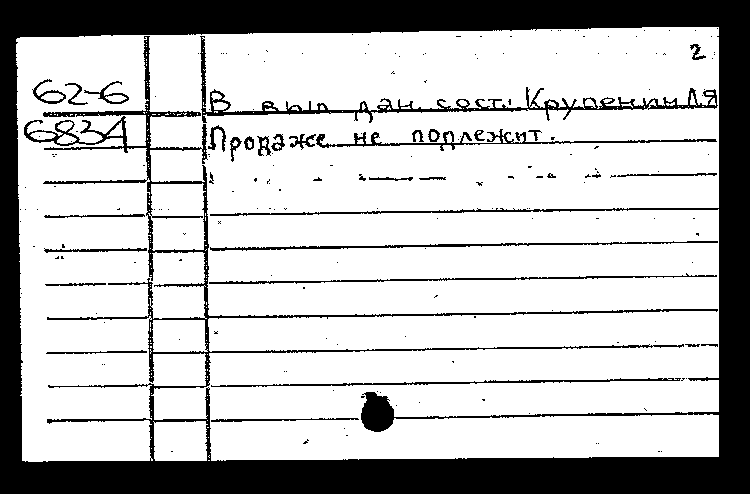 2
62-6 В вып дан. сост: Крупенин Л Я
6834 Продаже не подлежит.